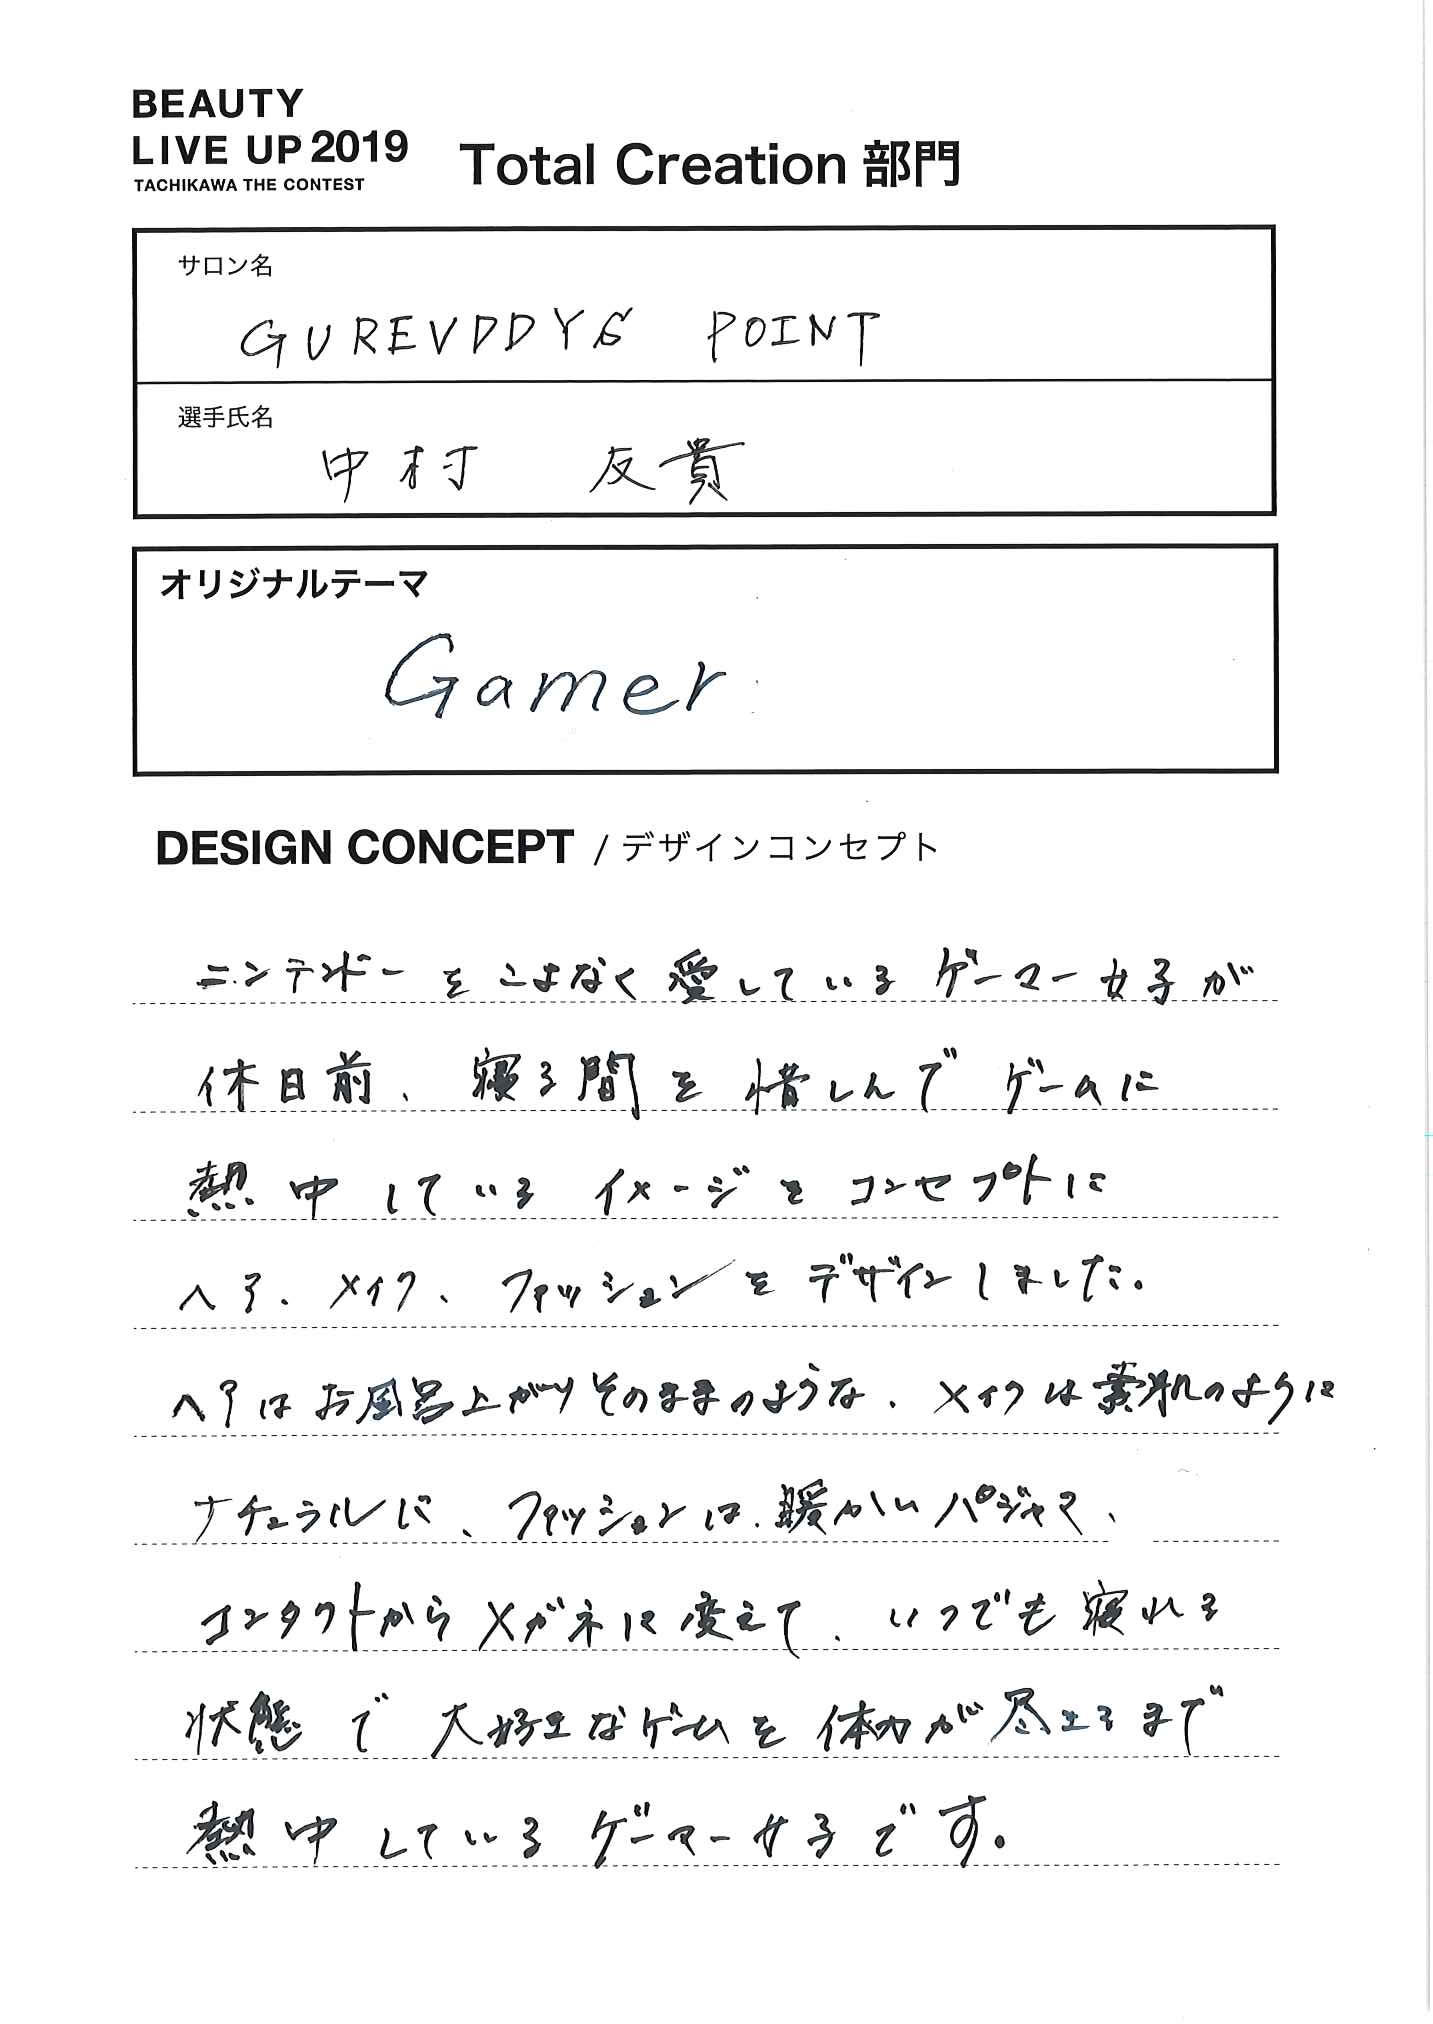 BEAUTY
LIVE UP 2019
TACHIKAWA THE CONTEST
Total Creation 部門
サロン名
GUREVDDYS POINT
選手氏名
中村 友貴
オリジナルテーマ
Gamer
DESIGN CONCEPT / デザインコンセプト
ニンテンドーをこよなく愛しているゲーマー女子が
休日前、寝る間を惜しんでゲームに
熱中しているイメージをコンセプトに
ヘア、メイク、ファッションをデザインしました。
ヘアはお風呂上がりそのままのような、メイクは素肌のように
ナチュラルに、ファッションは、暖かいパジャマ、
コンタクトからメガネに変えて、いつでも寝れる
状態で大好きなゲームを体力が尽きるまで
熱中しているゲーマー女子です。